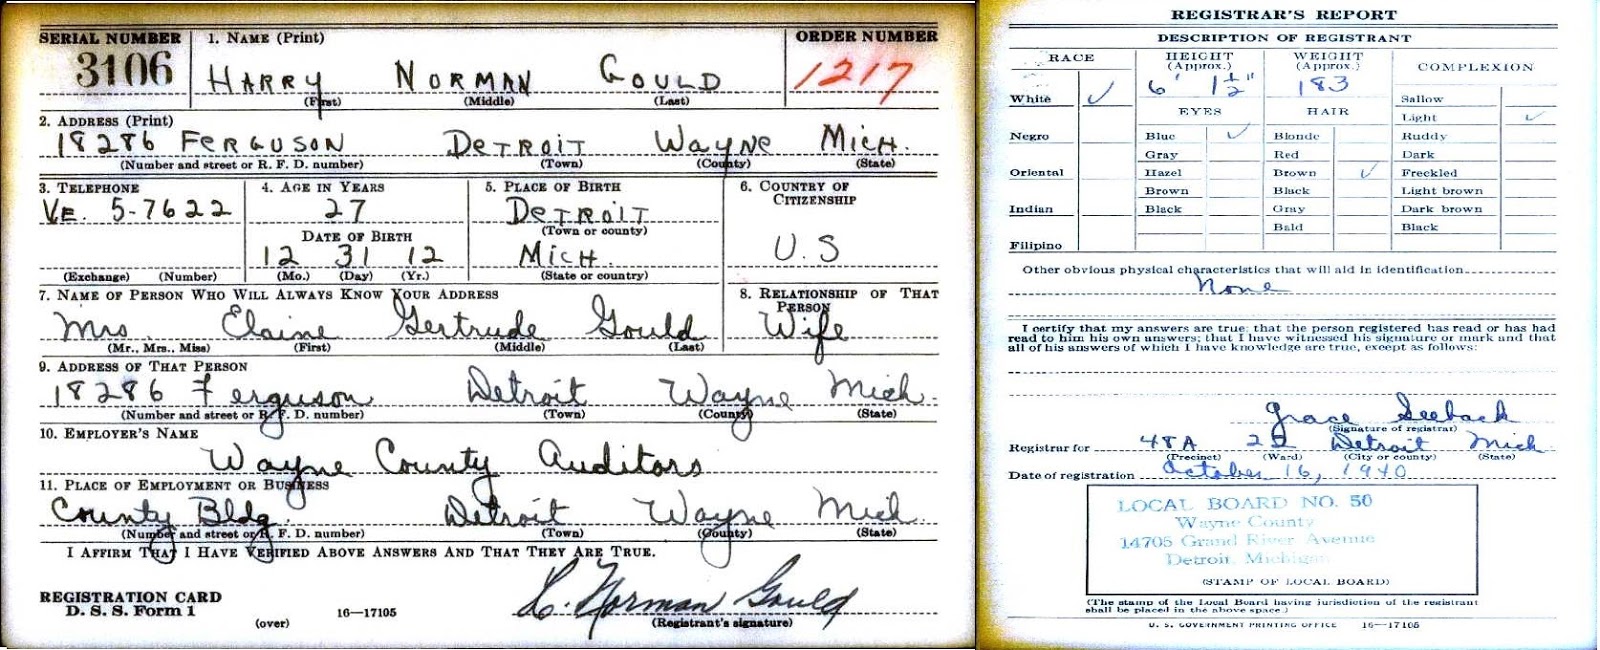 SERIAL NUMBER
3106
1. NAME (Print)
HARRY NORMAN GOULD
(First) (Middle) (Last)
ORDER NUMBER
1217
2. ADDRESS (Print)
18286 FERGUSON DETROIT WAYNE MICH.
(Number and street or R. F. D. number) (Town) (County) (State)
3. TELEPHONE
VE. 5-7622
(Exchange) (Number)
4. AGE IN YEARS
27
DATE OF BIRTH
12 31 12
(Mo.) (Day) (Yr.)
5. PLACE OF BIRTH
DETROIT
(Town or county)
MICH.
(State or country)
6. COUNTRY OF
CITIZENSHIP
U.S
7. NAME OF PERSON WHO WILL ALWAYS KNOW YOUR ADDRESS
Mrs Elaine Gertrude Gould
(Mr., Mrs., Miss) (First) (Middle) (Last)
8. RELATIONSHIP OF THAT
PERSON
Wife
9. ADDRESS OF THAT PERSON
18286 Ferguson Detroit Wayne Mich.
(Number and street or R. F. D. number) (Town) (County) (State)
10. EMPLOYER'S NAME
Wayne County Auditors
11. PLACE OF EMPLOYMENT OR BUSINESS
County Bldg. Detroit Wayne Mich
(Number and street or R. F. D. number) (Town) (County) (State)
I AFFIRM THAT I HAVE VERIFIED ABOVE ANSWERS AND THAT THEY ARE TRUE.
REGISTRATION CARD
D. S. S. Form 1
(over)
16—17105
H. Norman Gould
(Registrant's signature)
REGISTRAR'S REPORT
DESCRIPTION OF REGISTRANT
RACE
White ✓
Negro
Oriental
Indian
Filipino
HEIGHT
(Approx.)
6' 1½"
WEIGHT
(Approx.)
183
EYES
Blue ✓
Gray
Hazel
Brown
Black
HAIR
Blonde
Red
Brown ✓
Black
Gray
Bald
COMPLEXION
Sallow
Light ✓
Ruddy
Dark
Freckled
Light brown
Dark brown
Black
Other obvious physical characteristics that will aid in identification
None
I certify that my answers are true; that the person registered has read or has had
read to him his own answers; that I have witnessed his signature or mark and that
all of his answers of which I have knowledge are true, except as follows:
Grace Seeback
(Signature of registrar)
Registrar for 48A 22 Detroit Mich
(Precinct) (Ward) (City or county) (State)
Date of registration October 16, 1940
LOCAL BOARD NO. 50
Wayne County
14705 Grand River Avenue
Detroit, Michigan
(STAMP OF LOCAL BOARD)
(The stamp of the Local Board having jurisdiction of the registrant
shall be placed in the above space.)
U. S. GOVERNMENT PRINTING OFFICE 16—17105